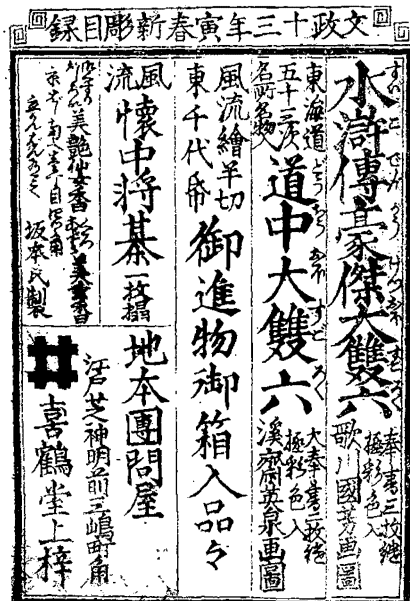 文政十三年寅春新彫目録
水滸傳豪傑大雙六
すいこでんがうけつおほすごろく
奉書三枚継
極彩色入
歌川國芳画圖
東海道
五十三次
名所名物入
道中大雙六
どうちうおほすごろく
大奉書二枚継
極彩色入
溪齋英泉画圖
風流繪半切
東千代帋
御進物御箱入品々
風流
懐中将棊
一枚摺
美艶仙女香
美玄香
坂本氏製
地本團問屋
江戸芝神明前三嶋町角
喜鶴堂上梓